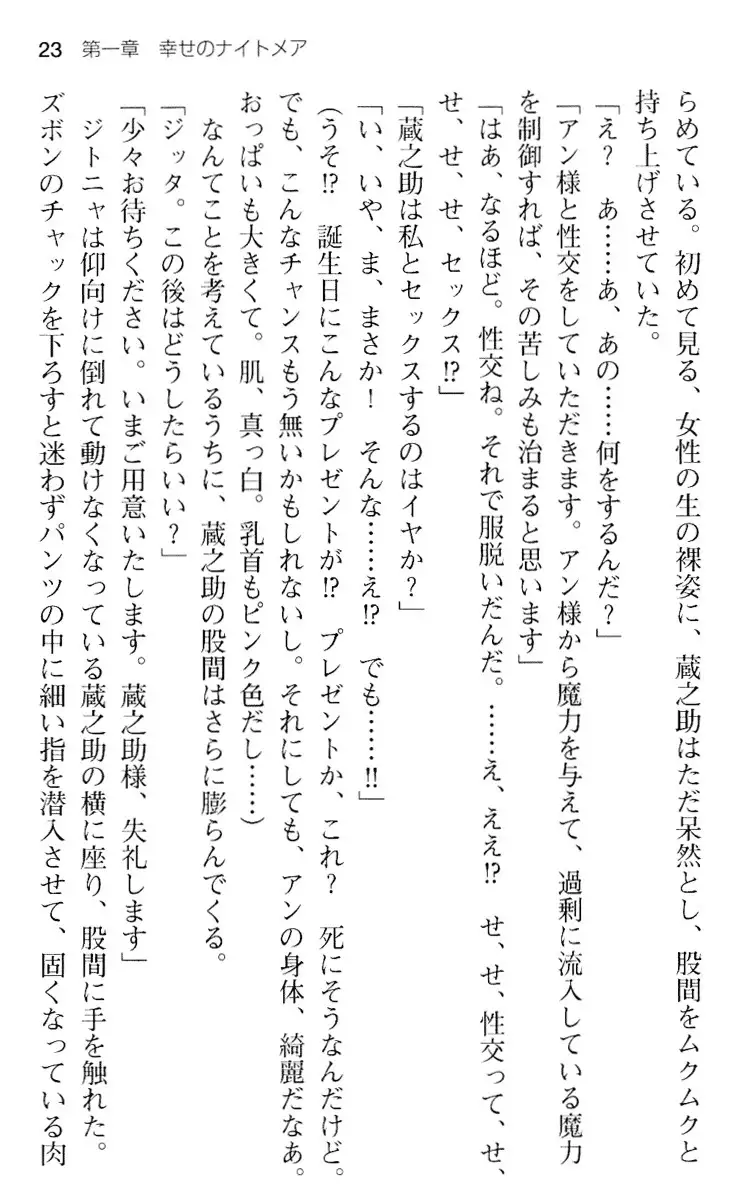 23 第一章 幸せのナイトメア
らめている。初めて見る、女性の生の裸姿に、蔵之助はただ呆然とし、股間をムクムクと
持ち上げさせていた。
「え？　あ……あ、あの……何をするんだ？」
「アン様と性交をしていただきます。アン様から魔力を与えて、過剰に流入している魔力
を制御すれば、その苦しみも治まると思います」
「はあ、なるほど。性交ね。それで服脱いだんだ。……え、ええ⁉　せ、せ、性交って、せ、
せ、せ、せ、セックス⁉」
「蔵之助は私とセックスするのはイヤか？」
「い、いや、ま、まさか！　そんな……え⁉　でも……‼」
（うそ⁉　誕生日にこんなプレゼントが⁉　プレゼントか、これ？　死にそうなんだけど。
でも、こんなチャンスもう無いかもしれないし。それにしても、アンの身体、綺麗だなあ。
おっぱいも大きくて。肌、真っ白。乳首もピンク色だし……）
なんてことを考えているうちに、蔵之助の股間はさらに膨らんでくる。
「ジッタ。この後はどうしたらいい？」
「少々お待ちください。いまご用意いたします。蔵之助様、失礼します」
ジトニャは仰向けに倒れて動けなくなっている蔵之助の横に座り、股間に手を触れた。
ズボンのチャックを下ろすと迷わずパンツの中に細い指を潜入させて、固くなっている肉